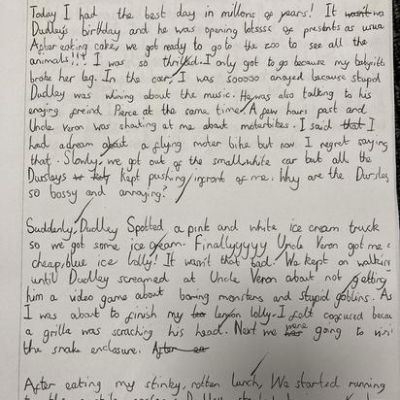 Today I had the best day in millons of years! It wasn't wa
Dudleys birthday and he was opening lotssss of presents as usua
After eating cake, we got ready to go to the zoo to see all the
animals!!! I was so thrilled. I only got to go because my babysitts
broke her leg. In the car, I was sooooo anoyed because stupid
Dudley was wining about the music. He was also talking to his
enoying freind Pierce at the same time. A few hours past and
Uncle Veron was shouting at me about moterbikes. I said that I
had a dream about a flying moter bike but now I regret saying
that. Slowly, we got out of the small white car but all the
Dursleys kept pushing ingront of me. Why are the Dursley
so bossy and annoying?
Suddenly, Dudley Spotted a pink and white ice cream truck
so we got some ice cream. Finallyyyyy Uncle Veron got me a
cheap, blue ice lolly! It wasn't that bad. We kept on walking
until Dudley screamed at Uncle Veron about not getting
him a video game about boring monsters and stupid goblins. As
I was about to finish my lemon lolly. I felt confused becau
a grilla was scraching his head. Next we were going to visi
the snake enclosure. After ea
After eating my stinky, rotten lunch, We started running